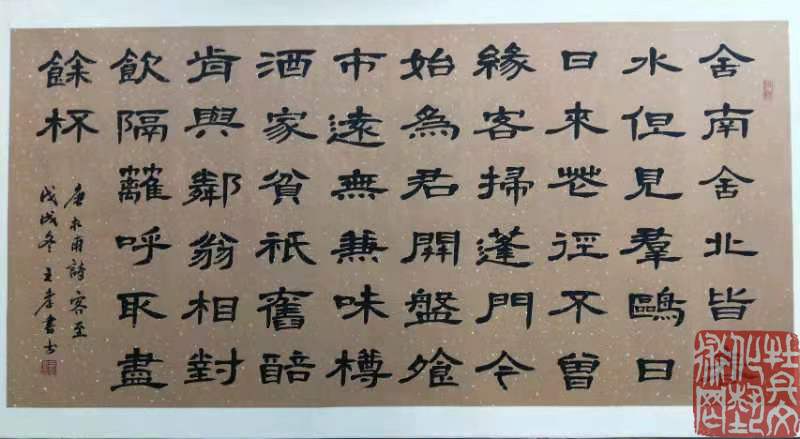 舍南舍北皆
水但見羣鷗日
日來花徑不曾
緣客掃蓬門今
始為君開盤飧
市遠無兼味樽
酒家貧祇舊醅
肯與鄰翁相對
飲隔籬呼取盡
餘杯
唐杜甫詩客至
戊戌冬